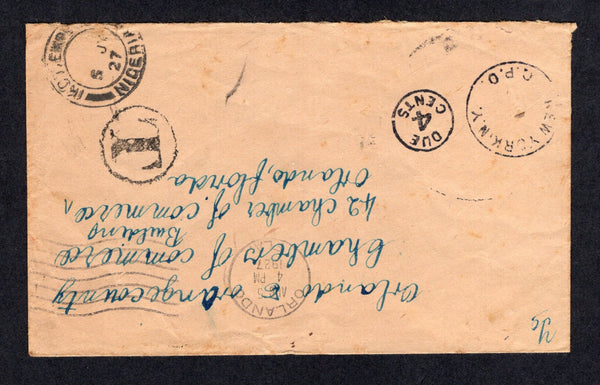 IKOT EKPENE
5 JY
27
NIGERIA
T
DUE
4
CENTS
NEW YORK, N.Y.
R.P.O.
Orlando & orangecounty
Chambers of commerce
Building
42 chamber of commerce ^
Orlando, florida
ORLANDO
4 PM
1927